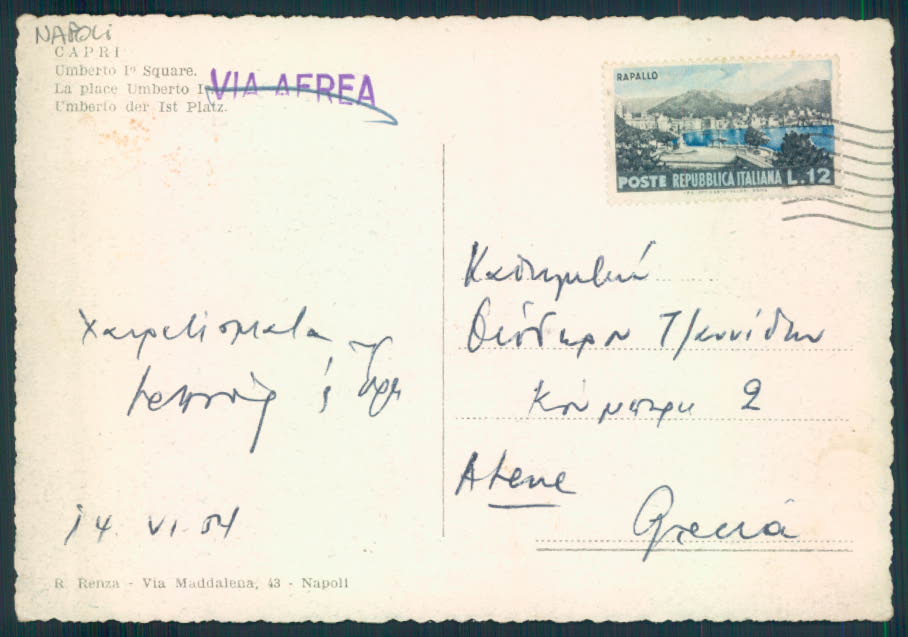 NAPOLi
CAPRI
Umberto Iº Square.
La place Umberto I
Umberto der Ist Platz.
VIA AEREA
RAPALLO
POSTE REPUBBLICA ITALIANA L.12
Χαιρετίσματα
14. VI. 54
R. Renza - Via Maddalena, 43 - Napoli
Καθηγητὴν
Θεόδωρον Τζαννίδην
2
Atene
Grecia